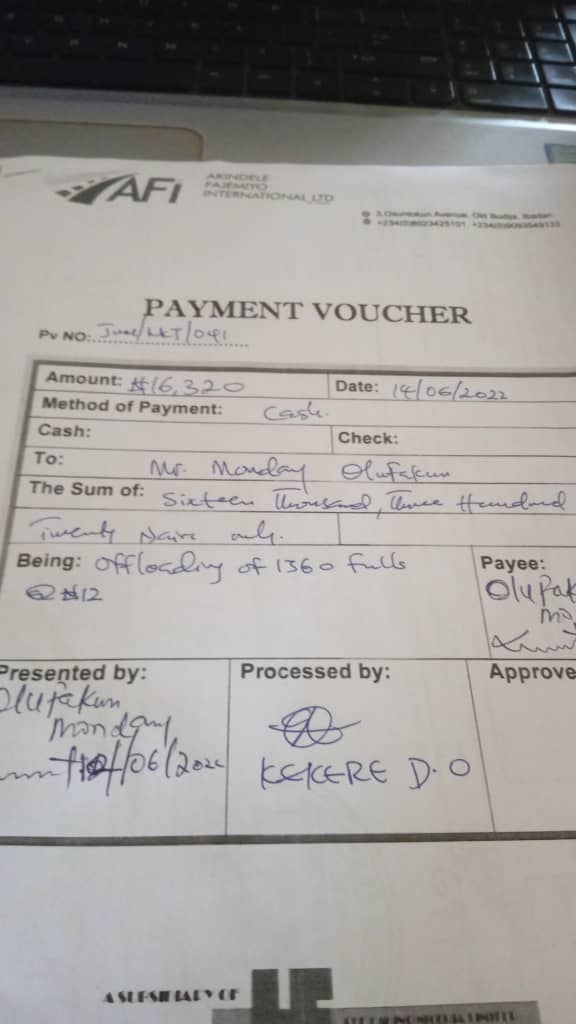 AFJ
AKINDELE
FAJEMIYO
INTERNATIONAL LTD
3, Osuntokun Avenue, Old Bodija, Ibadan
PAYMENT VOUCHER
PV NO: June/LKT/041
Amount: ₦16,320
Date: 14/06/2022
Method of Payment: Cash.
Cash:
Check:
To: Mr. Monday Olufakun
The Sum of: Sixteen Thousand, Three Hundred
Twenty Naira only.
Being: Offloading of 1360 fulls
@ ₦12
Payee:
Olufak
Mo
Presented by:
Olufakun
Monday
/06/2022
Processed by:
KEKERE D.O
Approve
A SUBSIDIARY OF